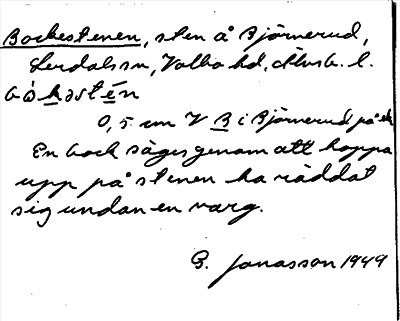 Bockestenen, sten å Björnerud,
Lerdals sn, Valbo hd, Älvsb. l.
bókəstén
0,5 cm V B i Björnerud på ek
En bock säges genom att hoppa
upp på stenen ha räddat
sig undan en varg.
G. Jonasson 1949